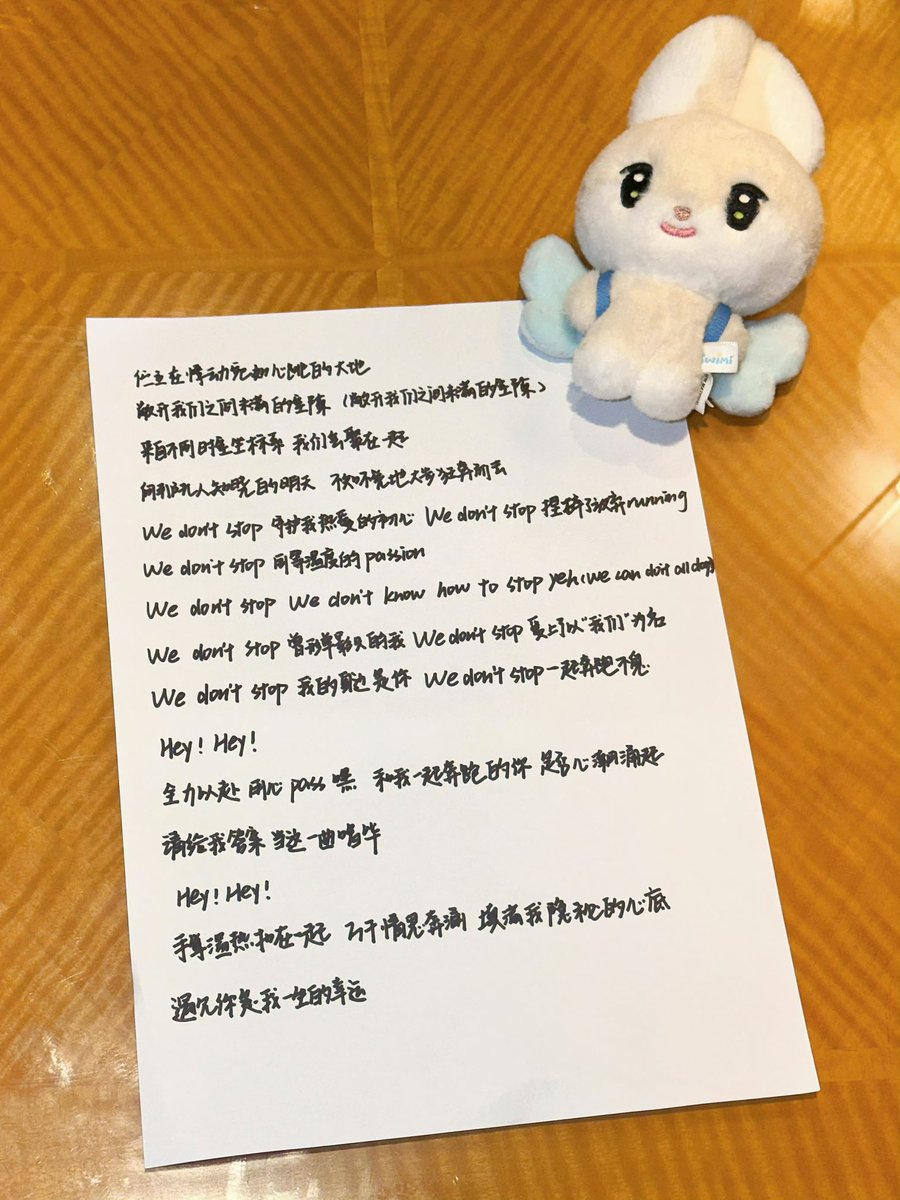 伫立在悸动宛如心跳的大地
敞开我们之间未满的空隙（敞开我们之间未满的空隙）
来自不同时空坐标系 我们会聚在一起
向 无人知晓的明天 不知不觉地大步狂奔而去
We don't stop 守护我热爱的初心 We don't stop 捏碎了放弃running
We don't stop 同等温度的passion
We don't stop We don't know how to stop yeh(we can do it all day)
We don't stop 曾形单影只的我 We don't stop 爱上了以"我们"为名
We don't stop 我的身边是你 We don't stop 一起奔跑不息
Hey! Hey!
全力以赴 用心pass 嘿 和我一起奔跑的你 是否心潮涌起
请给我答案 当这一曲唱毕
Hey! Hey!
手掌温热扣在一起 万千情思奔涌 填满我隐秘的心底
遇见你是我一生的幸运